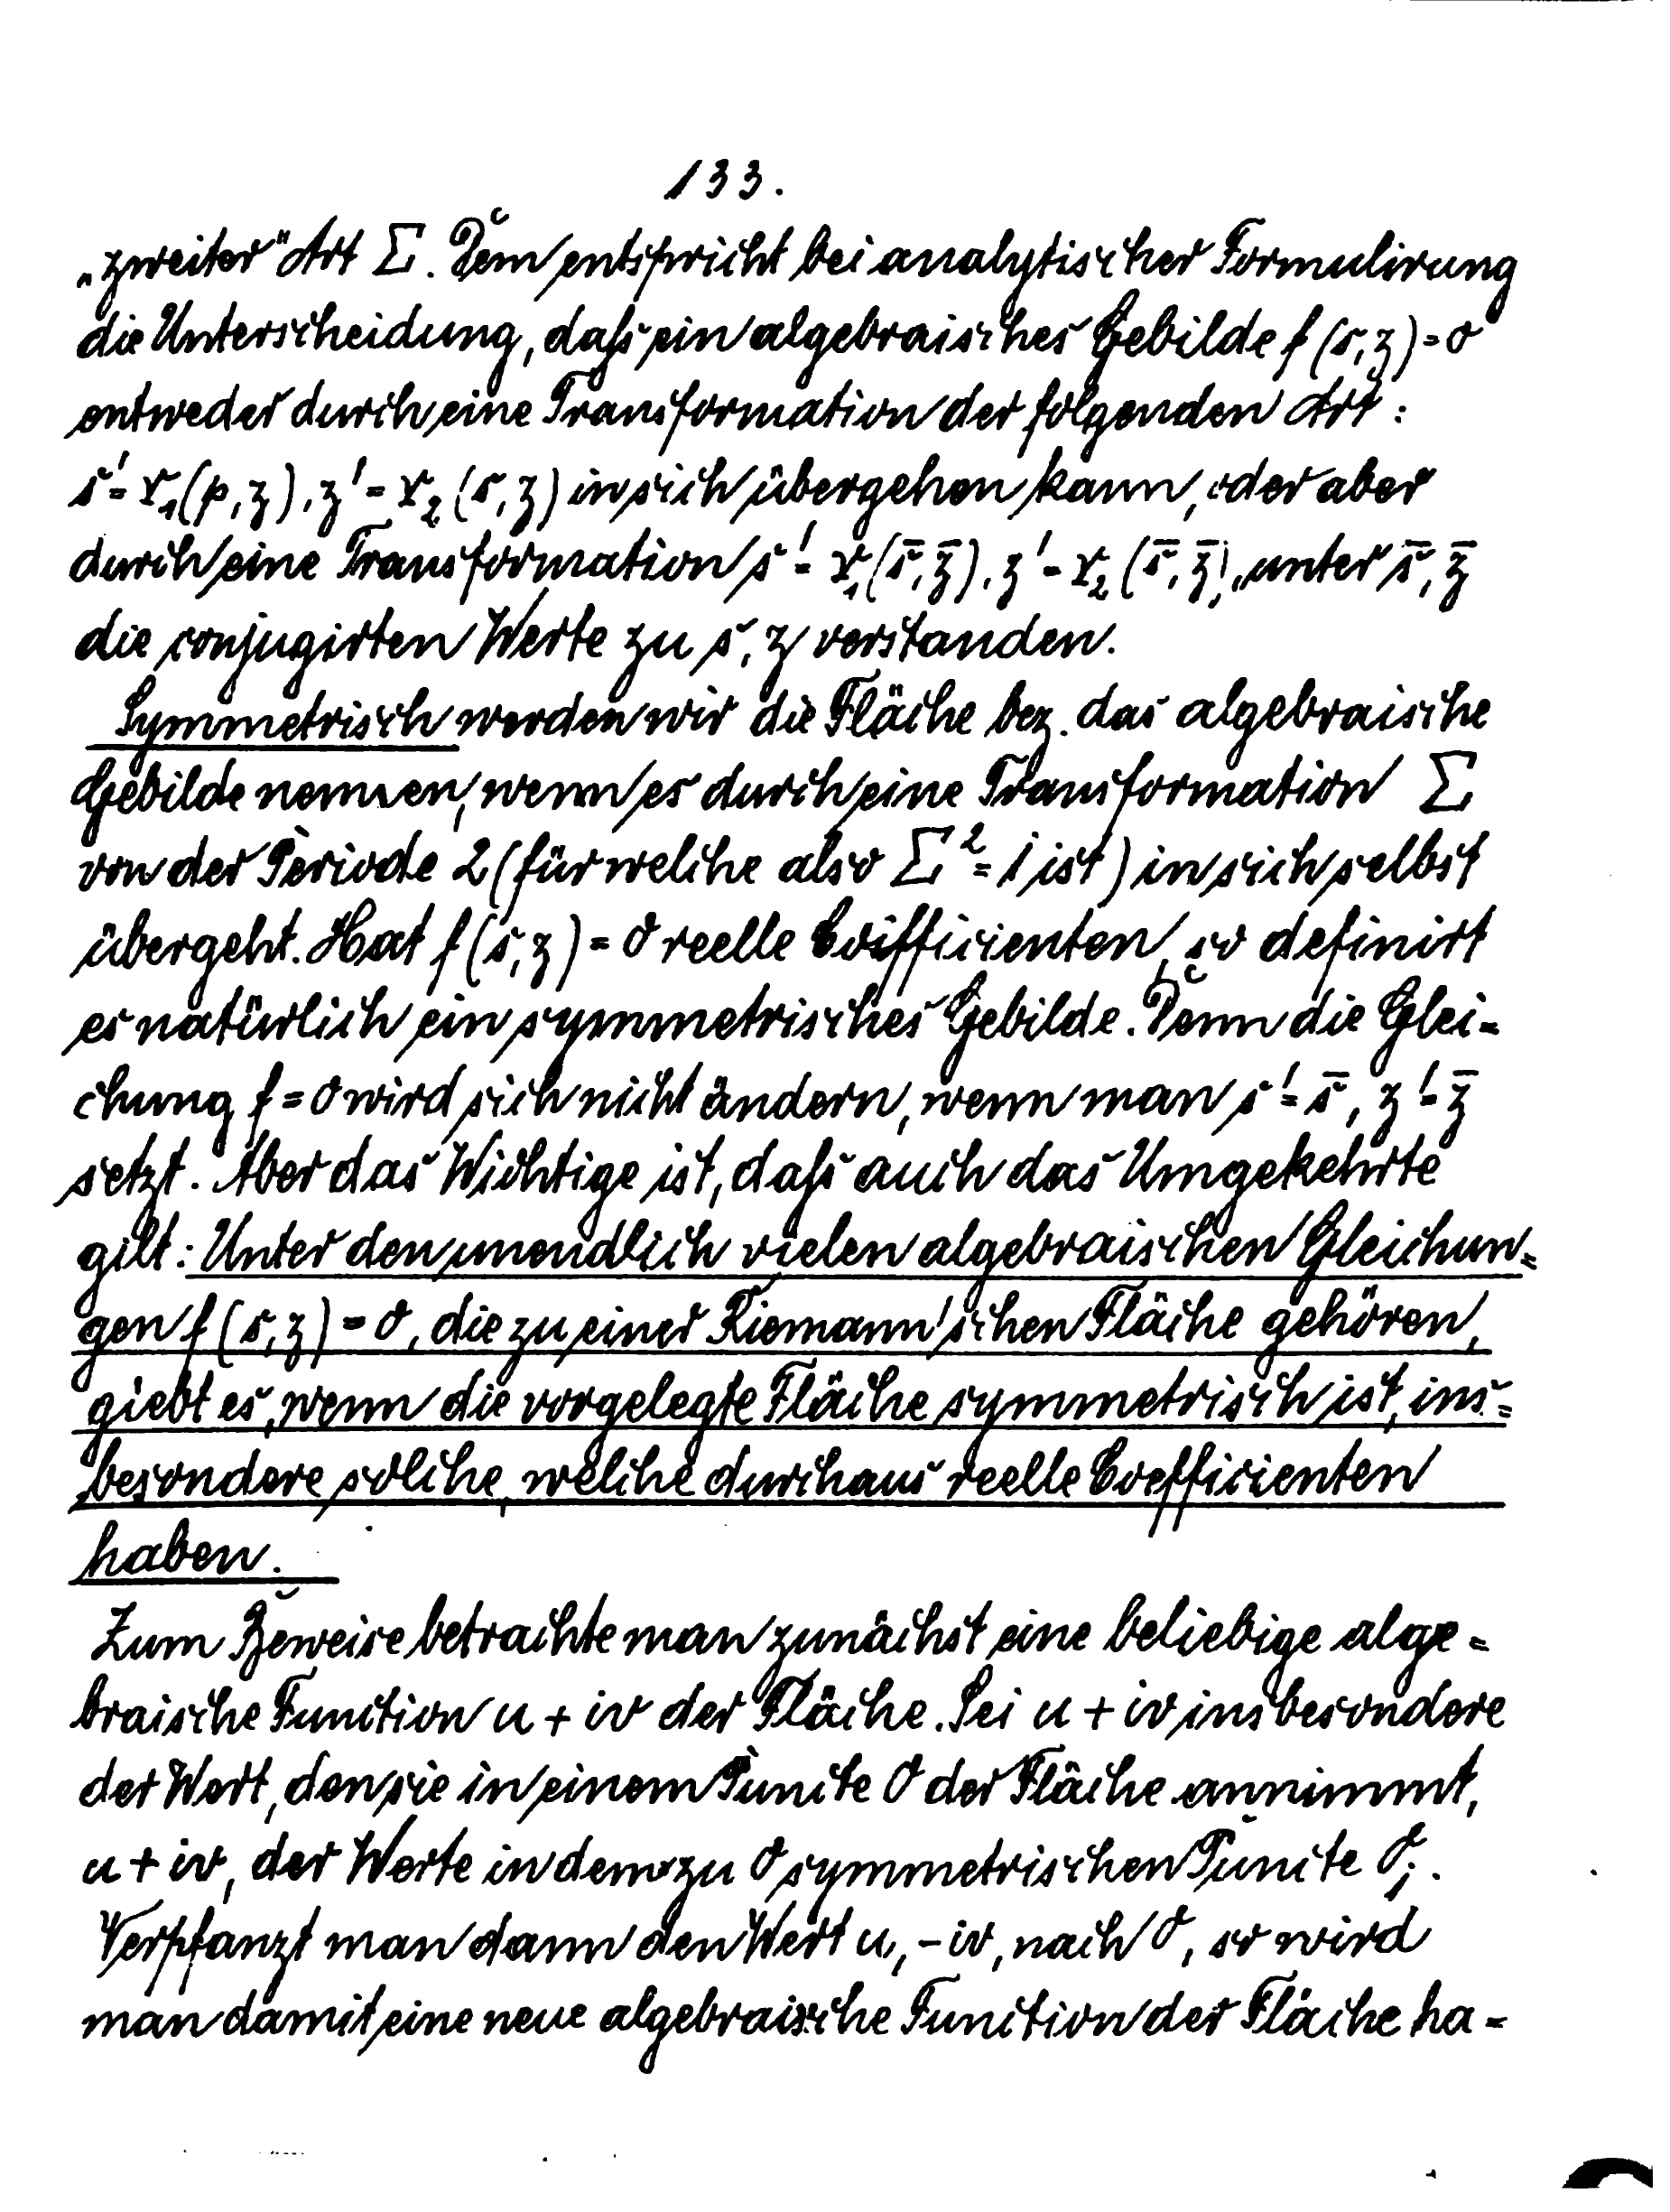 133.
„zweiter" Art Σ. Dem entspricht bei analytischer Formulirung
die Unterscheidung, daß ein algebraisches Gebilde f (s, z) = 0
entweder durch eine Transformation der folgenden Art:
s' = r₁(s, z), z' = r₂ (s, z) in sich übergehen kann, oder aber
durch eine Transformation s' = r₁(s̄, z̄), z' = r₂ (s̄, z̄), unter s̄, z̄
die conjugirten Werte zu s, z verstanden.
Symmetrisch werden wir die Fläche bez. das algebraische
Gebilde nennen, wenn es durch eine Transformation Σ
von der Periode 2 (für welche also Σ² = 1 ist) in sich selbst
übergeht. Hat f (s, z) = 0 reelle Coifficienten, so definirt
es natürlich ein symmetrisches Gebilde. Denn die Glei=
chung f = 0 wird sich nicht ändern, wenn man s' = s̄, z' = z̄
setzt. Aber das Wichtige ist, daß auch das Umgekehrte
gilt: Unter den unendlich vielen algebraischen Gleichun=
gen f (s, z) = 0, die zu einer Riemann'schen Fläche gehören,
giebt es, wenn die vorgelegte Fläche symmetrisch ist, ins=
besondere solche, welche durchaus reelle Coefficienten
haben.
Zum Beweise betrachte man zunächst eine beliebige alge=
braische Function u + iv der Fläche. Sei u + iv insbesondere
der Wert, den sie in einem Puncte O der Fläche annimmt,
u + iv, der Werte in dem zu O symmetrischen Puncte O,.
Verpfanzt man dann den Wert u, - iv, nach O, so wird
man damit eine neue algebraische Function der Fläche ha=